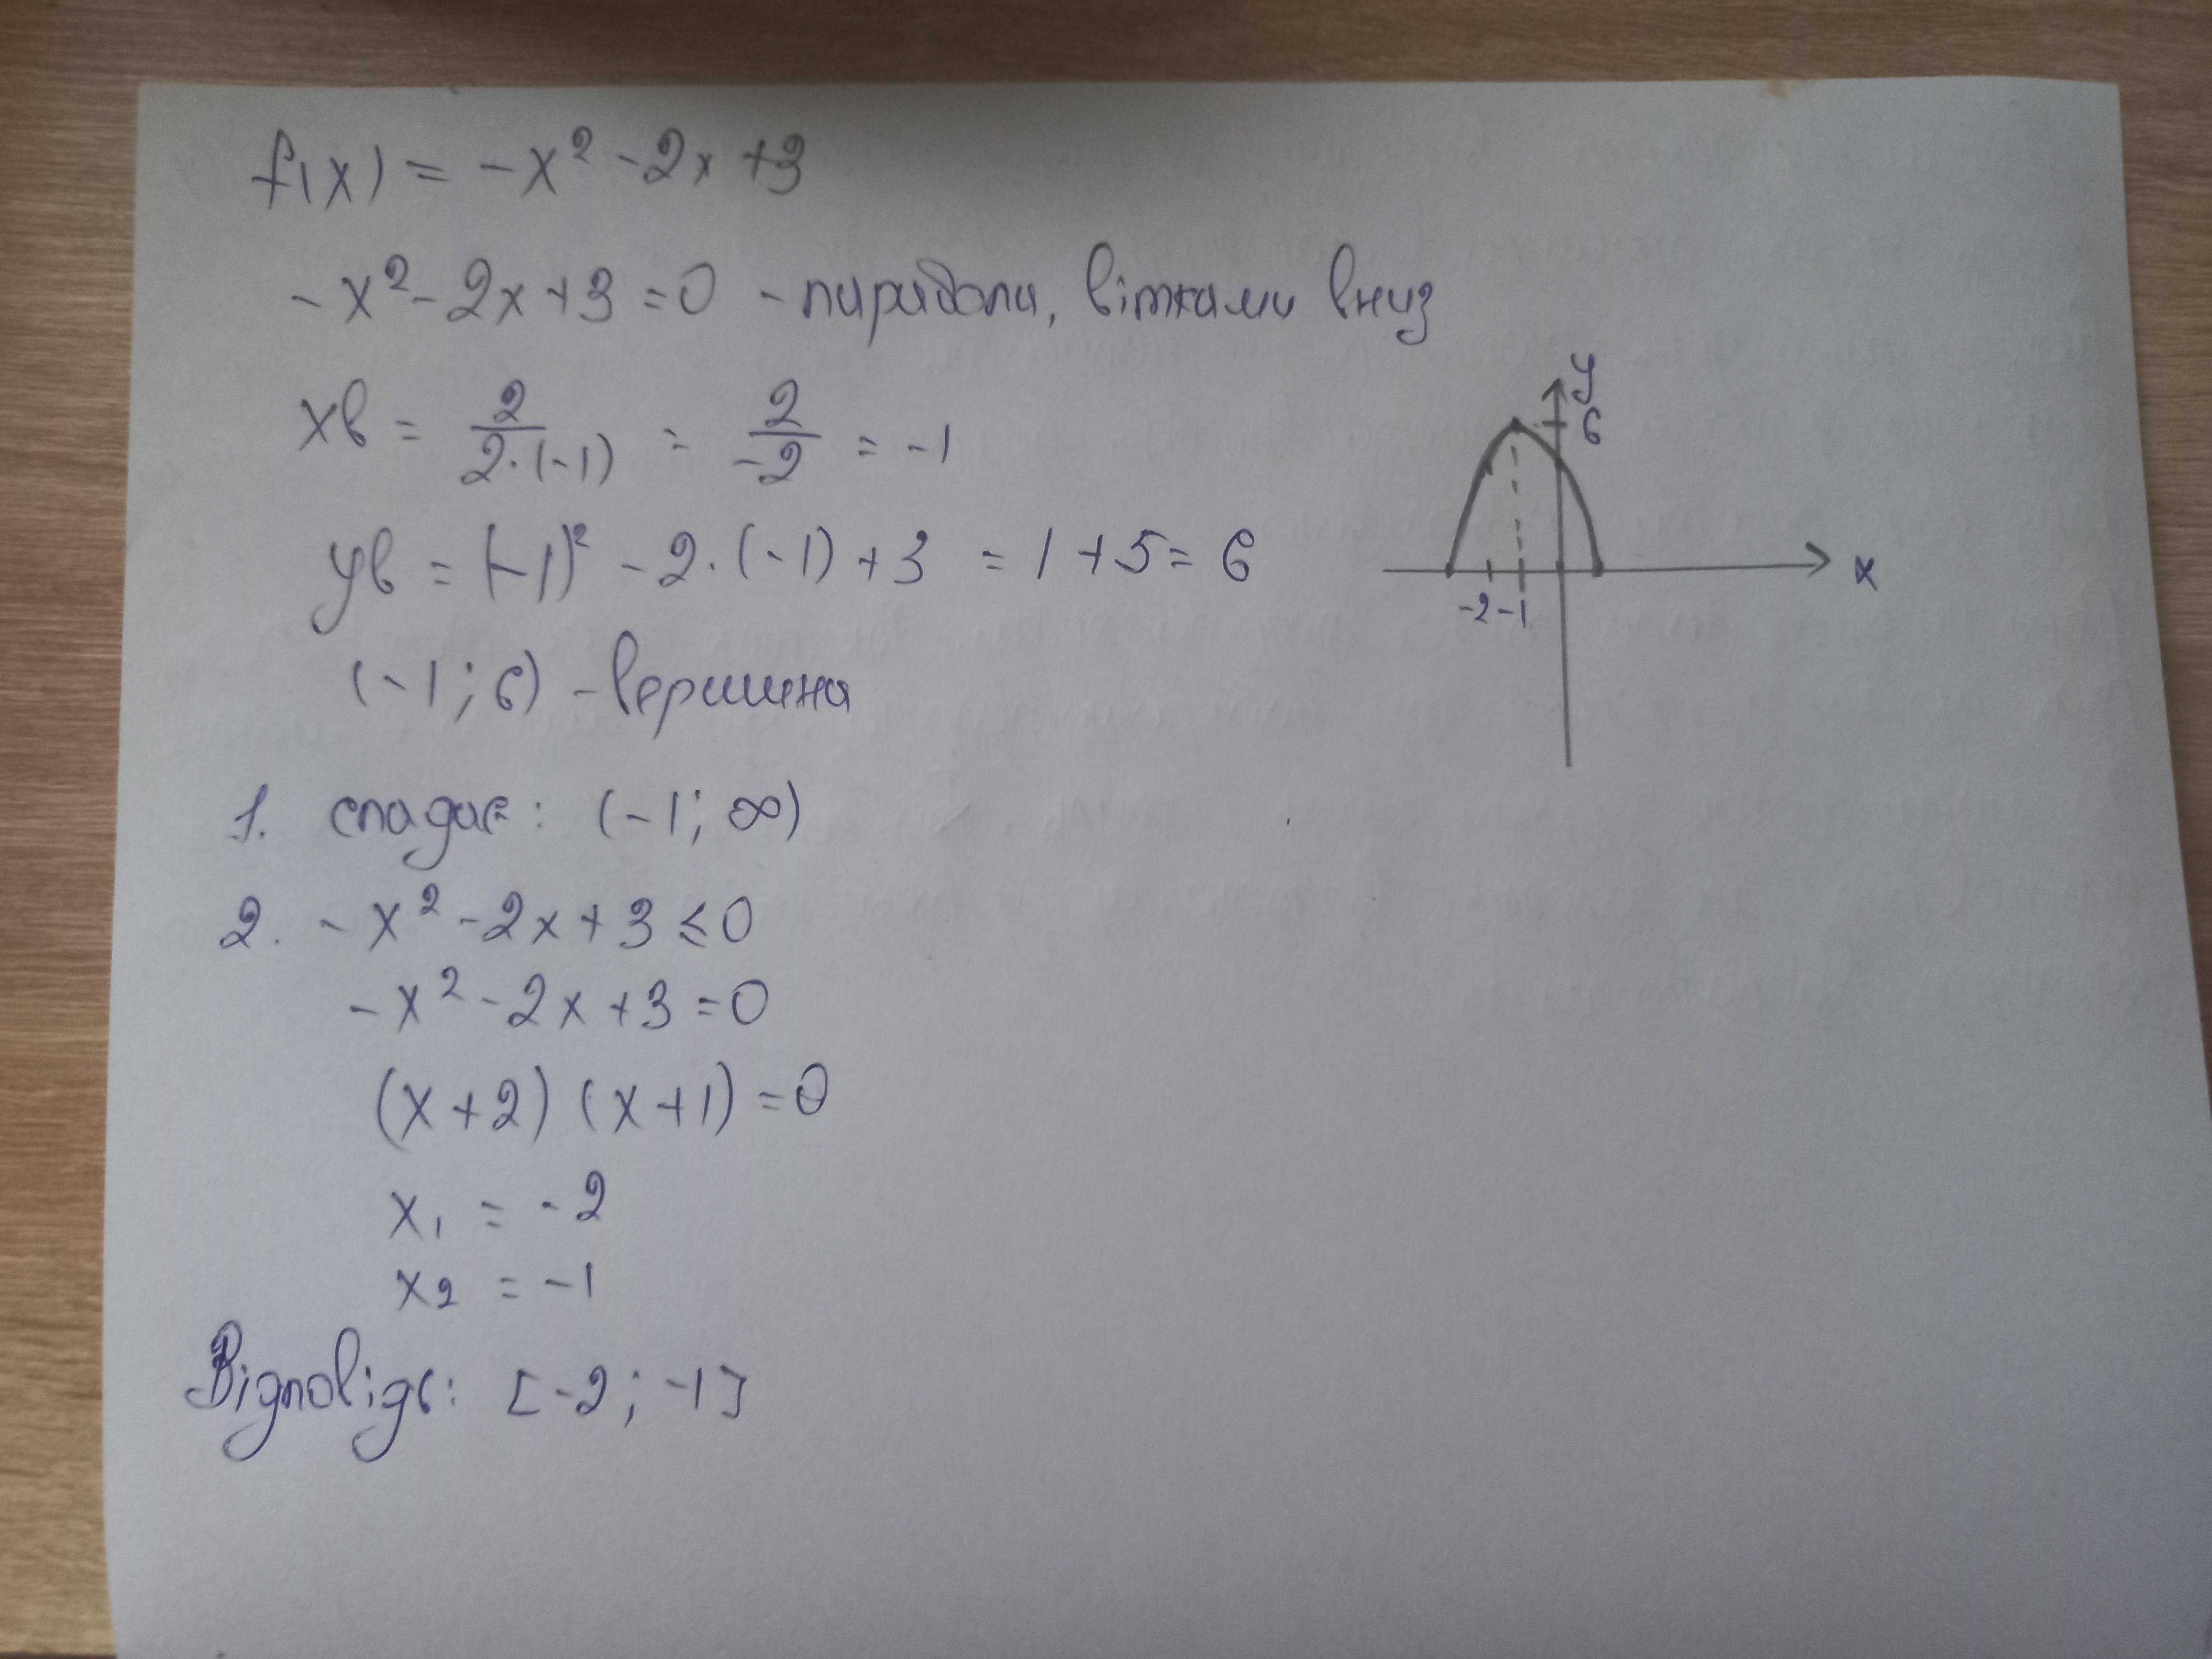 f(x) = -x² - 2x + 3
-x² - 2x + 3 = 0 - парабола, вітками вниз
xв = 2/(2·(-1)) = 2/(-2) = -1
yв = (-1)² - 2·(-1) + 3 = 1 + 5 = 6
(-1; 6) - вершина
y
6
-2 -1
x
1. спадає: (-1; ∞)
2. -x² - 2x + 3 ≤ 0
-x² - 2x + 3 = 0
(x + 2) (x + 1) = 0
x₁ = -2
x₂ = -1
Відповідь: [-2; -1]